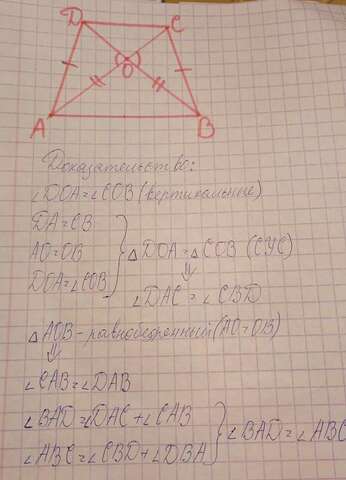 D C
O
A B
Доказательство:
∠DOA=∠COB (вертикальные)
DA=CB
AO=OB
DOA=∠COB
△DOA=△COB (СУС)
⇓
∠DAC=∠CBD
△AOB-равнобедренный (AO=OB)
⇓
∠CAB=∠DAB
∠BAD=∠DAC+∠CAB
∠ABC=∠CBD+∠DBA
∠BAD=∠ABC